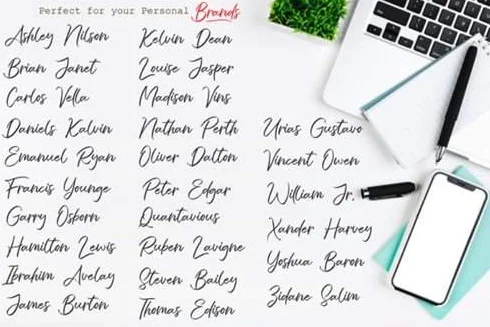 Perfect for your Personal Brands
Ashley Nilson
Brian Janet
Carlos Vella
Daniels Kalvin
Emanuel Ryan
Francis Younge
Garry Osborn
Hamilton Lewis
Ibrahim Avelay
James Burton
Kelvin Dean
Louise Jasper
Madison Vins
Nathan Perth
Oliver Dalton
Peter Edgar
Quantavious
Ruben Lavigne
Steven Bailey
Thomas Edison
Urias Gustavo
Vincent Owen
William Jr.
Xander Harvey
Yoshua Baron
Zidane Salim